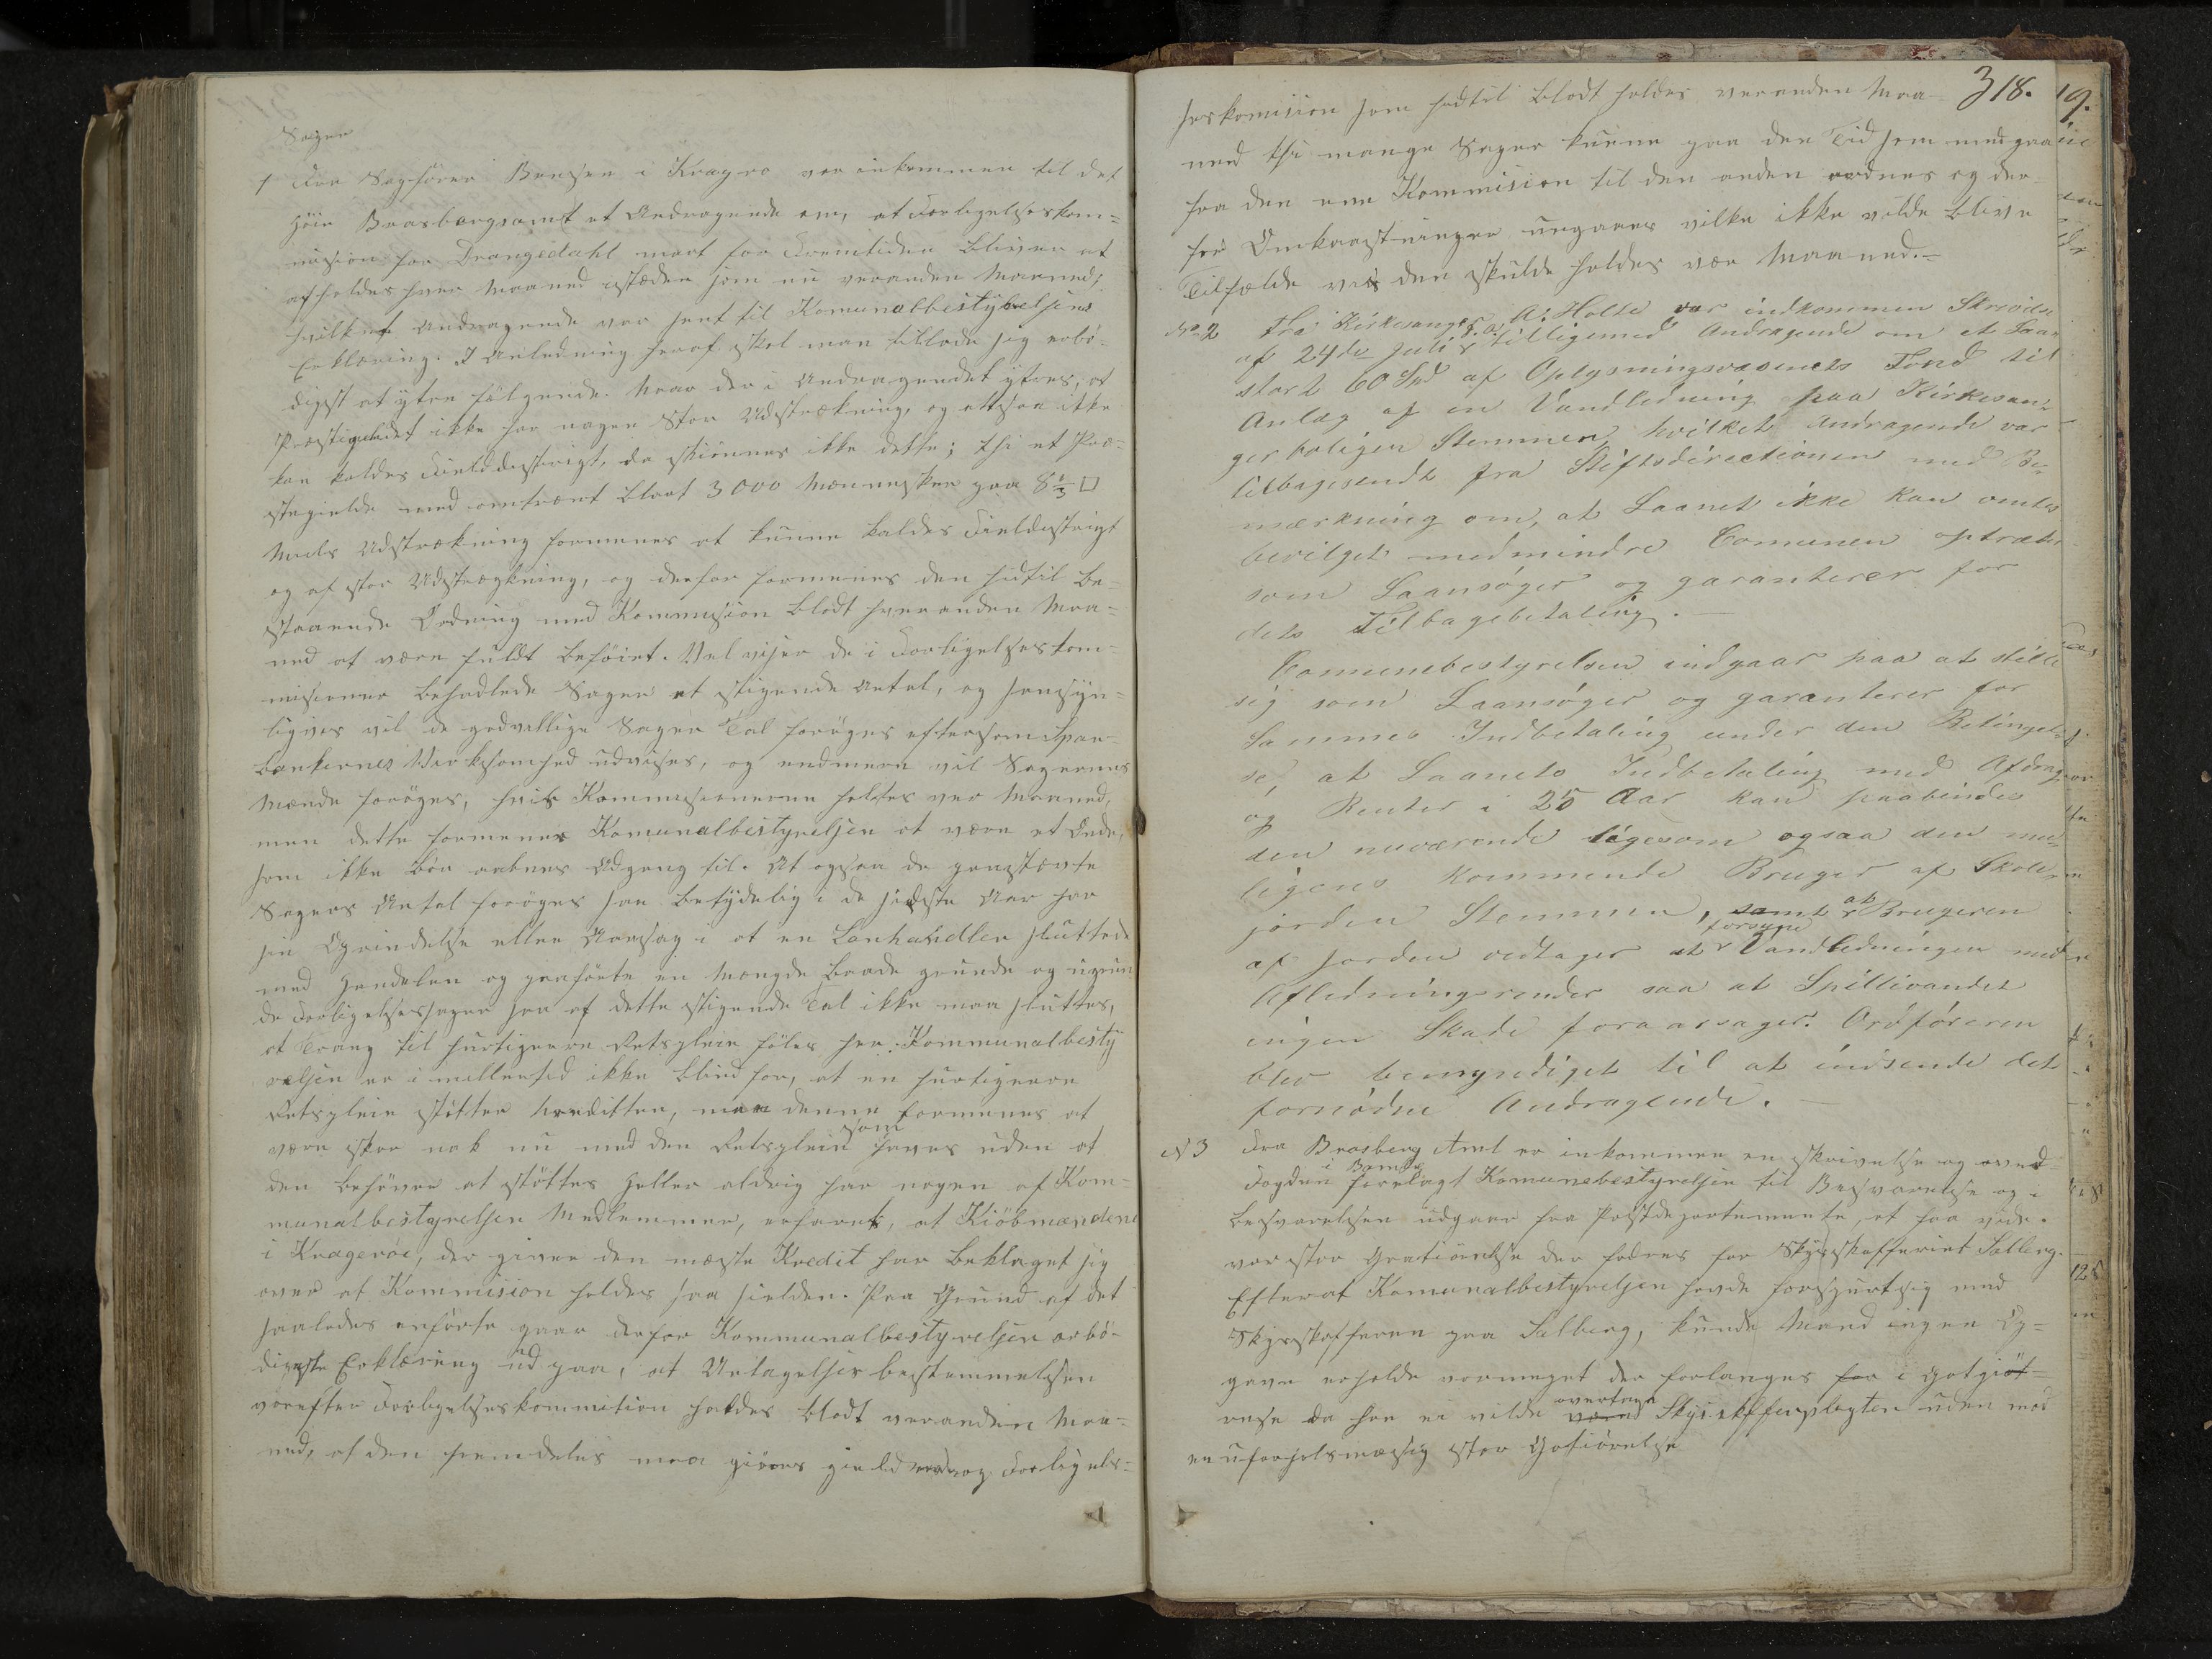 Sager
1 Fra Sagfører Bensen i Kragrø var inkommen til det
høie Brasbergsamt et Andragende om, at Forligelseskom=
mision for Drangedahl mart for Fremtiden bliver at
afholdes hver Maaned istæden som nu veranden Maaned;
hvilket Andragende var sent til Komunalbestyrelsens
Erklæring. I Anledning heraf skal man tillade sig erbø-
digst at ytre følgende. Naar der i Andragendet ytres, at
Præstegieldet ikke har nogen stor Udstrækning, og altsaa ikke
kan kaldes Fielddistrigt, da skiønnes ikke dette; thi et Præ-
stegield med omtrent blaat 3000 Mennesker paa 8 1/3 □
Miils Udstrækning formenes at kunne kaldes Fieldistrigt
og af stor Udstrægkning, og derfor formenes den hidtil be-
staaende Ordning med Kommision blodt hveranden Maa-
ned at være fuldt beføiet. Vel viser de i Forligelseskom-
misioner behadlede Sager et stigende Antal, og sansyn-
ligvis vil de godvillige Sagers Tal forøges eftersom Spar-
bankernes Virksomhed udvises, og endmere vil Sagernes
Mænde forøges, hvis Kommisionerne holdes ver Maaned,
men dette formener Komunalbestyrelsen at være et Onde,
som ikke bør aabnes Adgang til. At ogsaa de genstævte
Sagers Antal forøges saa betydelig i de sidste Aar har
sin Oprindelse eller Aarsag i at en Lanhandler sluttede
med Handelen og paaførte en Mængde baade grunde og ugrun
de Forligelsessager saa af dette stigende Tal ikke maa sluttes,
at Trang til hurtigere Retspleie føles her. Kommunalbesty
relsen er i mellertid ikke blind for, at en hurtigere
Retspleie støtter Kreditten, men denne formenes at
være skar nok nu med den Retspleie som haves uden at
den behøver at støttes heller aldrig har nogen af Kom-
munalbestyrelsen Medlemmer, erfaret, at Kiøbmændene
i Kragerøe, der giver den mæste Kredit har beklaget sig
over at Kommision holdes saa sielden. Paa Grund af det
saaledes anførte gaar derfor Kommunalbestyrelsen erbø-
digste Erklæring ud paa, at Antagelses bestemmelsen
vorefter Forligelseskommition holdes blodt veranden Maa-
ned, at den fremdeles maa giøres gield Forligels=
318.
seskomision som hidtil blodt holdes veranden Maa-
ned thi mange Sager kunne paa den Tid som medgaa
fra den ene Kommision til den anden ordnes og der-
for Omkaastninger ungaaes vilke ikke vilde blive
Tilfælde vis den skulde holdes vær Maaned.-
No 2 Fra Kirkesanger A. Holte var indkommen Skrivelse
af 24de Juli d.a. tilligemed Andragende om et Laan
stort 60 Spd af Oplysningsvæsenets Fond til
Anlæg af en Vandledning paa Kirkesan-
gerboligen Stemmen, hvilket Andragende var
tilbagesendt fra Stiftsdirectionen med Be-
mærkning om, at Laanet ikke kan ventes
bevilget medmindre Comunen optræder
som Laansøger og garanterer for
dets Tilbagebetaling.
Comunebestyrelsen indgaar paa at stille
sig som Laansøger og garanterer for
Sammes Indbetaling under den Betingel-
se, at Laanets Indbetaling med Afdrag
og Renter i 25 Aar kan paabindes
den nuværende ligesom ogsaa den mu-
ligens kommende Bruger af Skole-
jorden Stemmen, samt at Brugeren
af Jorden vedtager at forsyne Vandledningen med
Afledningsrender saa at Spillivandet
ingen Skade foraarsager. Ordføreren
blev bemyndiget til at indsende det
fornødne Andragende.
N 3 Fra Brasberg Amt er inkommen en skrivelse og ved
Fogden i Bamble forelagt Komunebestyrelsen til Besvarelse og i
besvarelsen udgaar fra Postdepartementet, at faa vide.
vor stor Gratiørelse der fodres for Skysskafferiet Solberg.
Efterat Komunalbestyrelsen havde forspurt sig med
Skysskafferen paa Solberg, kunde Mand ingen Op=
gave erholde vormeget der forlanges for i Gotgiøt-
relse da han ei vilde overtage Skysskafferpligten uden mod
en uforholsmæssig stor Gotiørelse